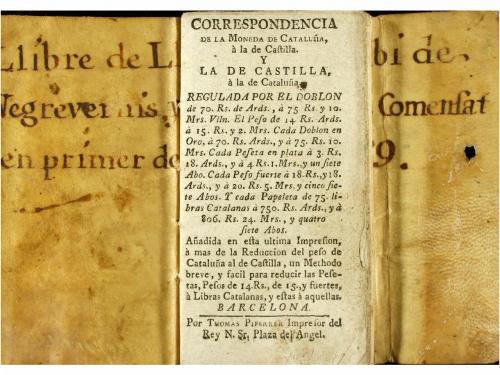 CORRESPONDENCIA
DE LA MONEDA DE CATALUÑA,
à la de Castilla.
Y
LA DE CASTILLA,
à la de Cataluña.
REGULADA POR EL DOBLON
de 70. Rs. de Ards., à 75. Rs. y 10.
Mrs. Vlln. El Peso de 14. Rs. Ards.
à 15. Rs. y 2. Mrs. Cada Doblon en
Oro, à 70. Rs. Ards., y à 75. Rs. 10.
Mrs. Cada Peseta en plata à 3. Rs.
18. Ards., y à 4. Rs. 1. Mrs., y un siete
Abo. Cada Peso fuerte à 18. Rs., y 18.
Ards., y à 20. Rs. 5. Mrs. y cinco sie-
te Abos. Y cada Papeleta de 75. li-
bras Catalanas à 750. Rs. Ards., y à
806. Rs. 24. Mrs., y quatro
siete Abos.
Añadida en esta ultima Impresion,
à mas de la Reduccion del peso de
Cataluña al de Castilla, un Methodo
breve, y facil para reducir las Pese-
tas, Pesos de 14. Rs., de 15., y fuertes,
à Libras Catalanas, y estas à aquellas.
BARCELONA.
Por THOMAS PIFERRER Impresor del
Rey N. Sr. Plaza del Angel.
Llibre de
bi de
Comensat
en primer de
9.